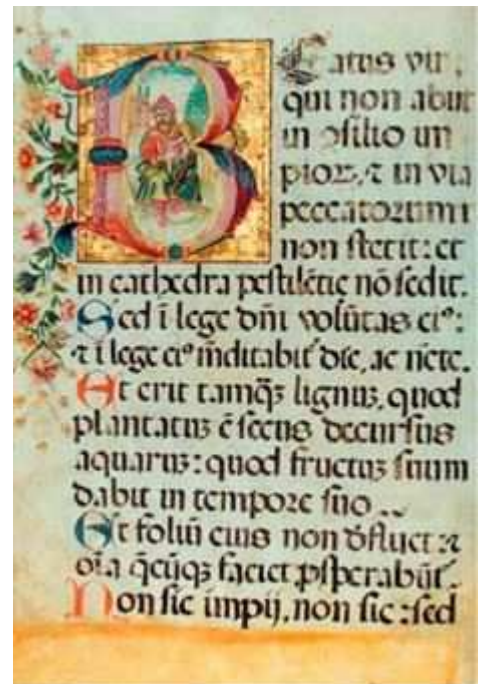 Beatus vir,
qui non abiit
in ↄsilio im
pioꝝ, ⁊ in via
peccatorum
non stetit: et
in cathedra pestilẽtie nõ sedit.
Sed ĩ lege dñi volũtas eiꝰ:
⁊ ĩ lege eiꝰ mditabit̃ die, ac ncte.
Et erit tamqꝫ lignuꝫ, quod
plantatuꝫ ẽ secus decursus
aquaruꝫ: quod fructuꝫ suum
dabit in tempore suo
Et foliũ eius non dꝰfluet: ⁊
oĩa q̃cũqꝫ faciet ꝓsperabũt̃.
Non sic impij, non sic: sed